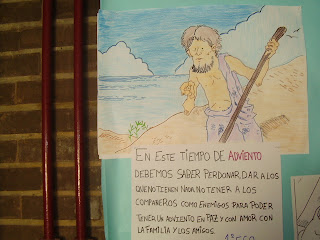 EN ESTE TIEMPO DE ADVIENTO
DEBEMOS SABER PERDONAR, DAR A LOS
QUE NO TIENEN NADA, NO TENER A LOS
COMPAÑEROS COMO ENEMIGOS PARA PODER
TENER UN ADVIENTO EN PAZ Y CON AMOR CON
LA FAMILIA Y LOS AMIGOS.
1º ESO